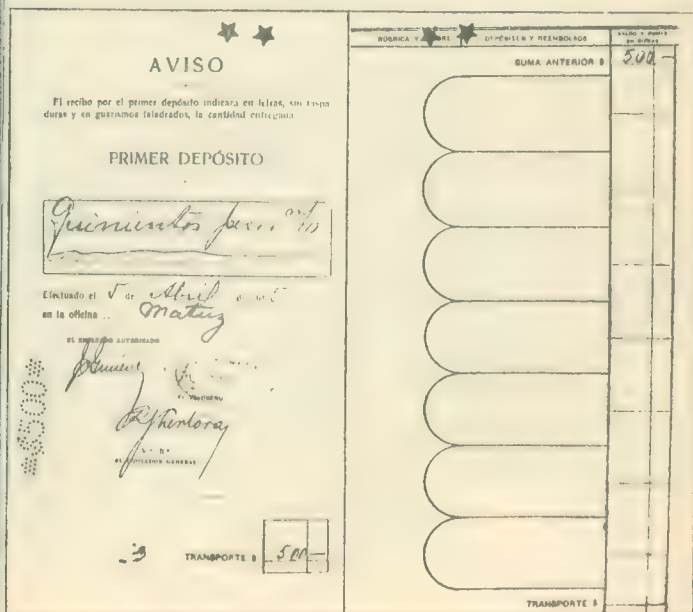 AVISO
El recibo por el primer depósito indicará en letras, sin raspa
duras y en guarismos taladrados, la cantidad entregada
PRIMER DEPÓSITO
Quinientos pesos m/n
Efectuado el 5 de Abril
en la oficina .. Matriz
EL EMPLEADO AUTORIZADO
EL TESORERO
Vº Bº
EL CONTADOR GENERAL
#$500#
TRANSPORTE $ 500—
RÚBRICA Y
DEPÓSITOS Y REEMBOLSOS
SUMA ANTERIOR $ 500 —
TRANSPORTE $